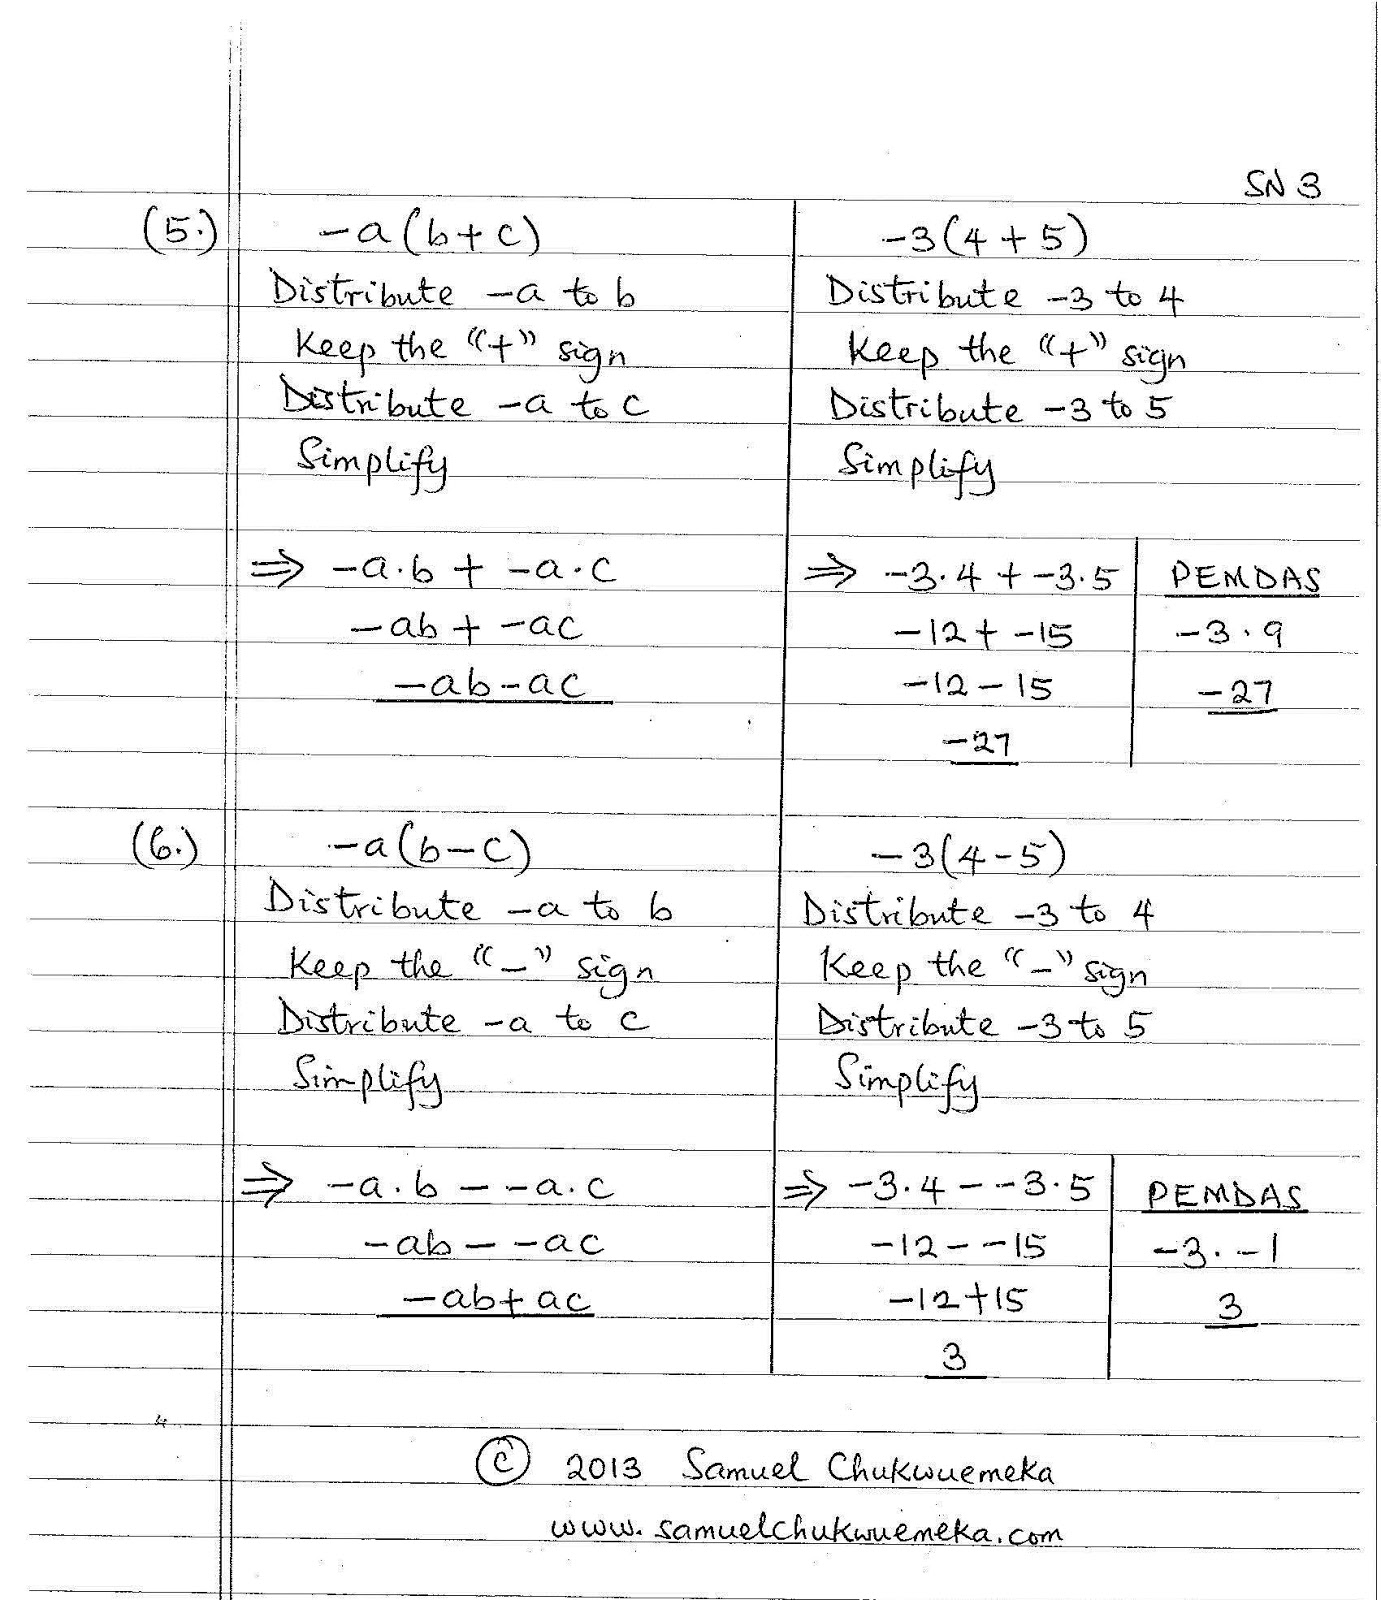 SN 3
(5.) -a(b+c)
Distribute -a to b
Keep the "+" sign
Distribute -a to c
Simplify
⇒ -a·b + -a·c
-ab + -ac
-ab-ac
-3(4+5)
Distribute -3 to 4
Keep the "+" sign
Distribute -3 to 5
Simplify
⇒ -3·4 + -3·5
-12 + -15
-12 - 15
-27
PEMDAS
-3·9
-27
(6.) -a(b-c)
Distribute -a to b
Keep the "-" sign
Distribute -a to c
Simplify
⇒ -a·b - -a·c
-ab - -ac
-ab+ac
-3(4-5)
Distribute -3 to 4
Keep the "-" sign
Distribute -3 to 5
Simplify
⇒ -3·4 - -3·5
-12 - -15
-12+15
3
PEMDAS
-3·-1
3
© 2013 Samuel Chukwuemeka
www.samuelchukwuemeka.com